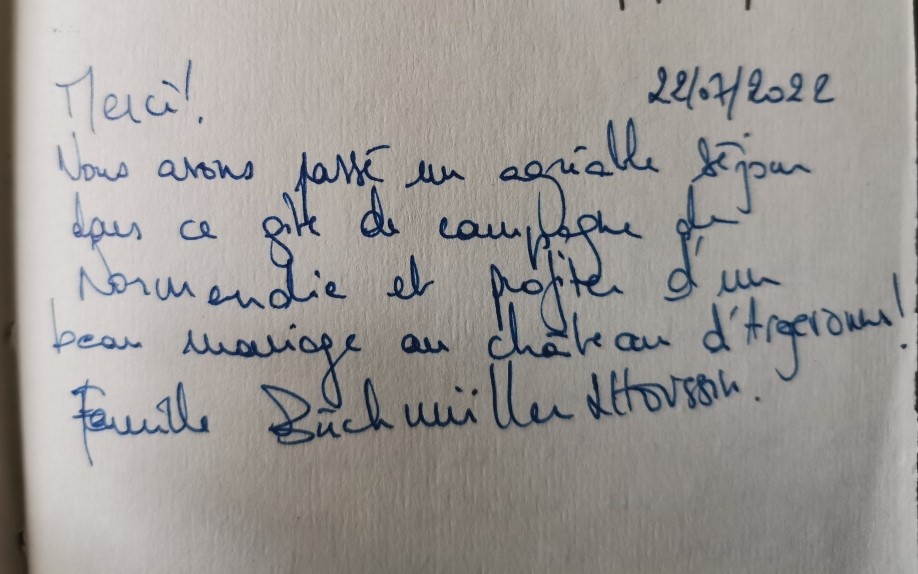 Merci! 22/07/2022
Nous avons passé un agréable séjour
dans ce gîte de campagne de
Normandie et profiter d'un
beau mariage au château d'Argeronne!
Famille Büchmüller &Housson.